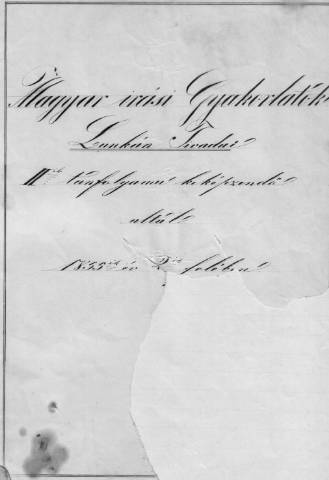 Magyar irási Gyakorlatok
Lunkán Tivadar
IIik tanfolyamú kiképzendő
által
1855ik év 2ik felében